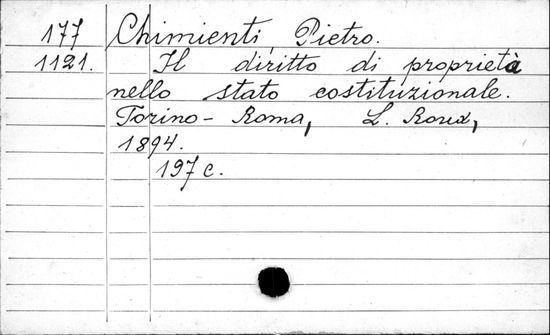 177 Chimienti, Pietro.
1121. Il diritto di proprietà
nello stato costituzionale.
Torino - Roma, L. Roux,
1894.
197 c.